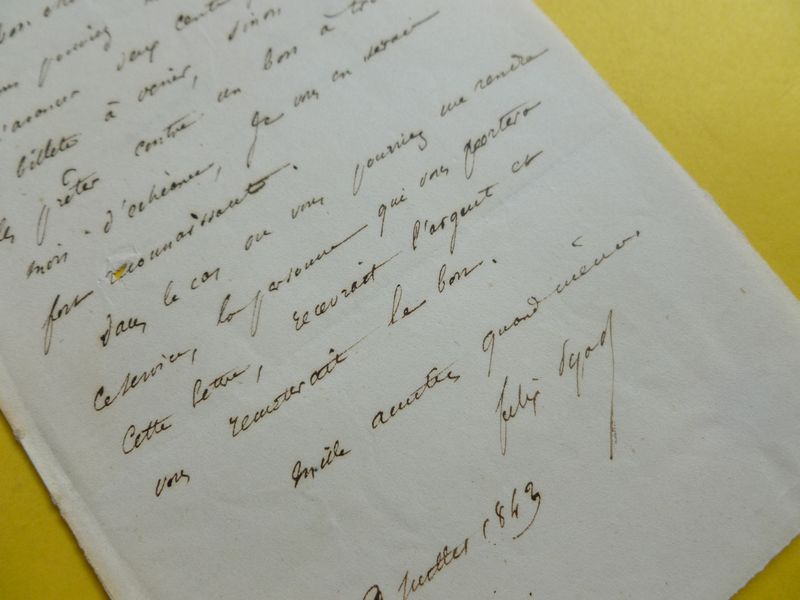 pouviez
avancer deux cents
billets à venir, sinon
les prêter contre un bon à trois
mois d'échéance, je vous en serais
fort reconnaissant.
Dans le cas ou vous pourriez me rendre
ce service, la personne qui vous portera
cette lettre, recevrait l'argent et
vous remettrait le bon.
mille amitiés quand même.
felix Pyat
juillet 1843